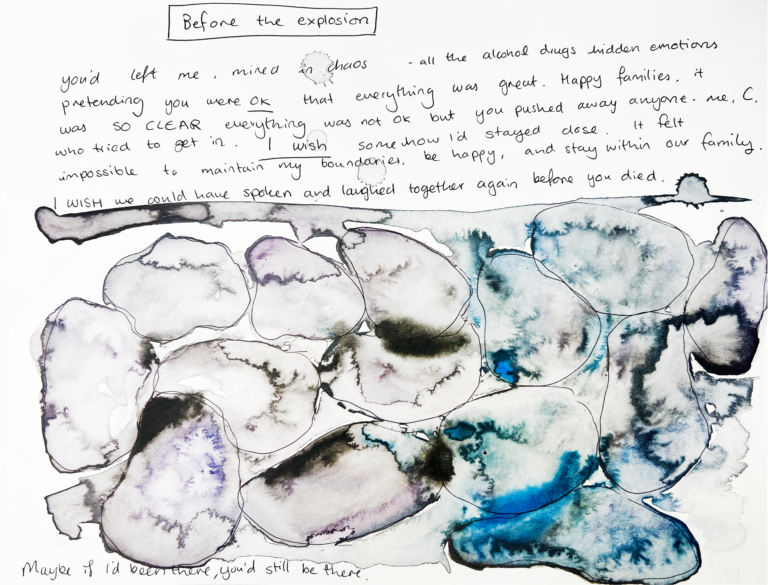 Before the explosion
you'd left me, mired in chaos - all the alcohol drugs hidden emotions
pretending you were OK that everything was great. Happy families. it
was SO CLEAR everything was not OK but you pushed away anyone. me, C,
who tried to get in. I wish somehow I'd stayed close. It felt
impossible to maintain my boundaries, be happy, and stay within our family.
I WISH we could have spoken and laughed together again before you died.
Maybe if I'd been there, you'd still be there.